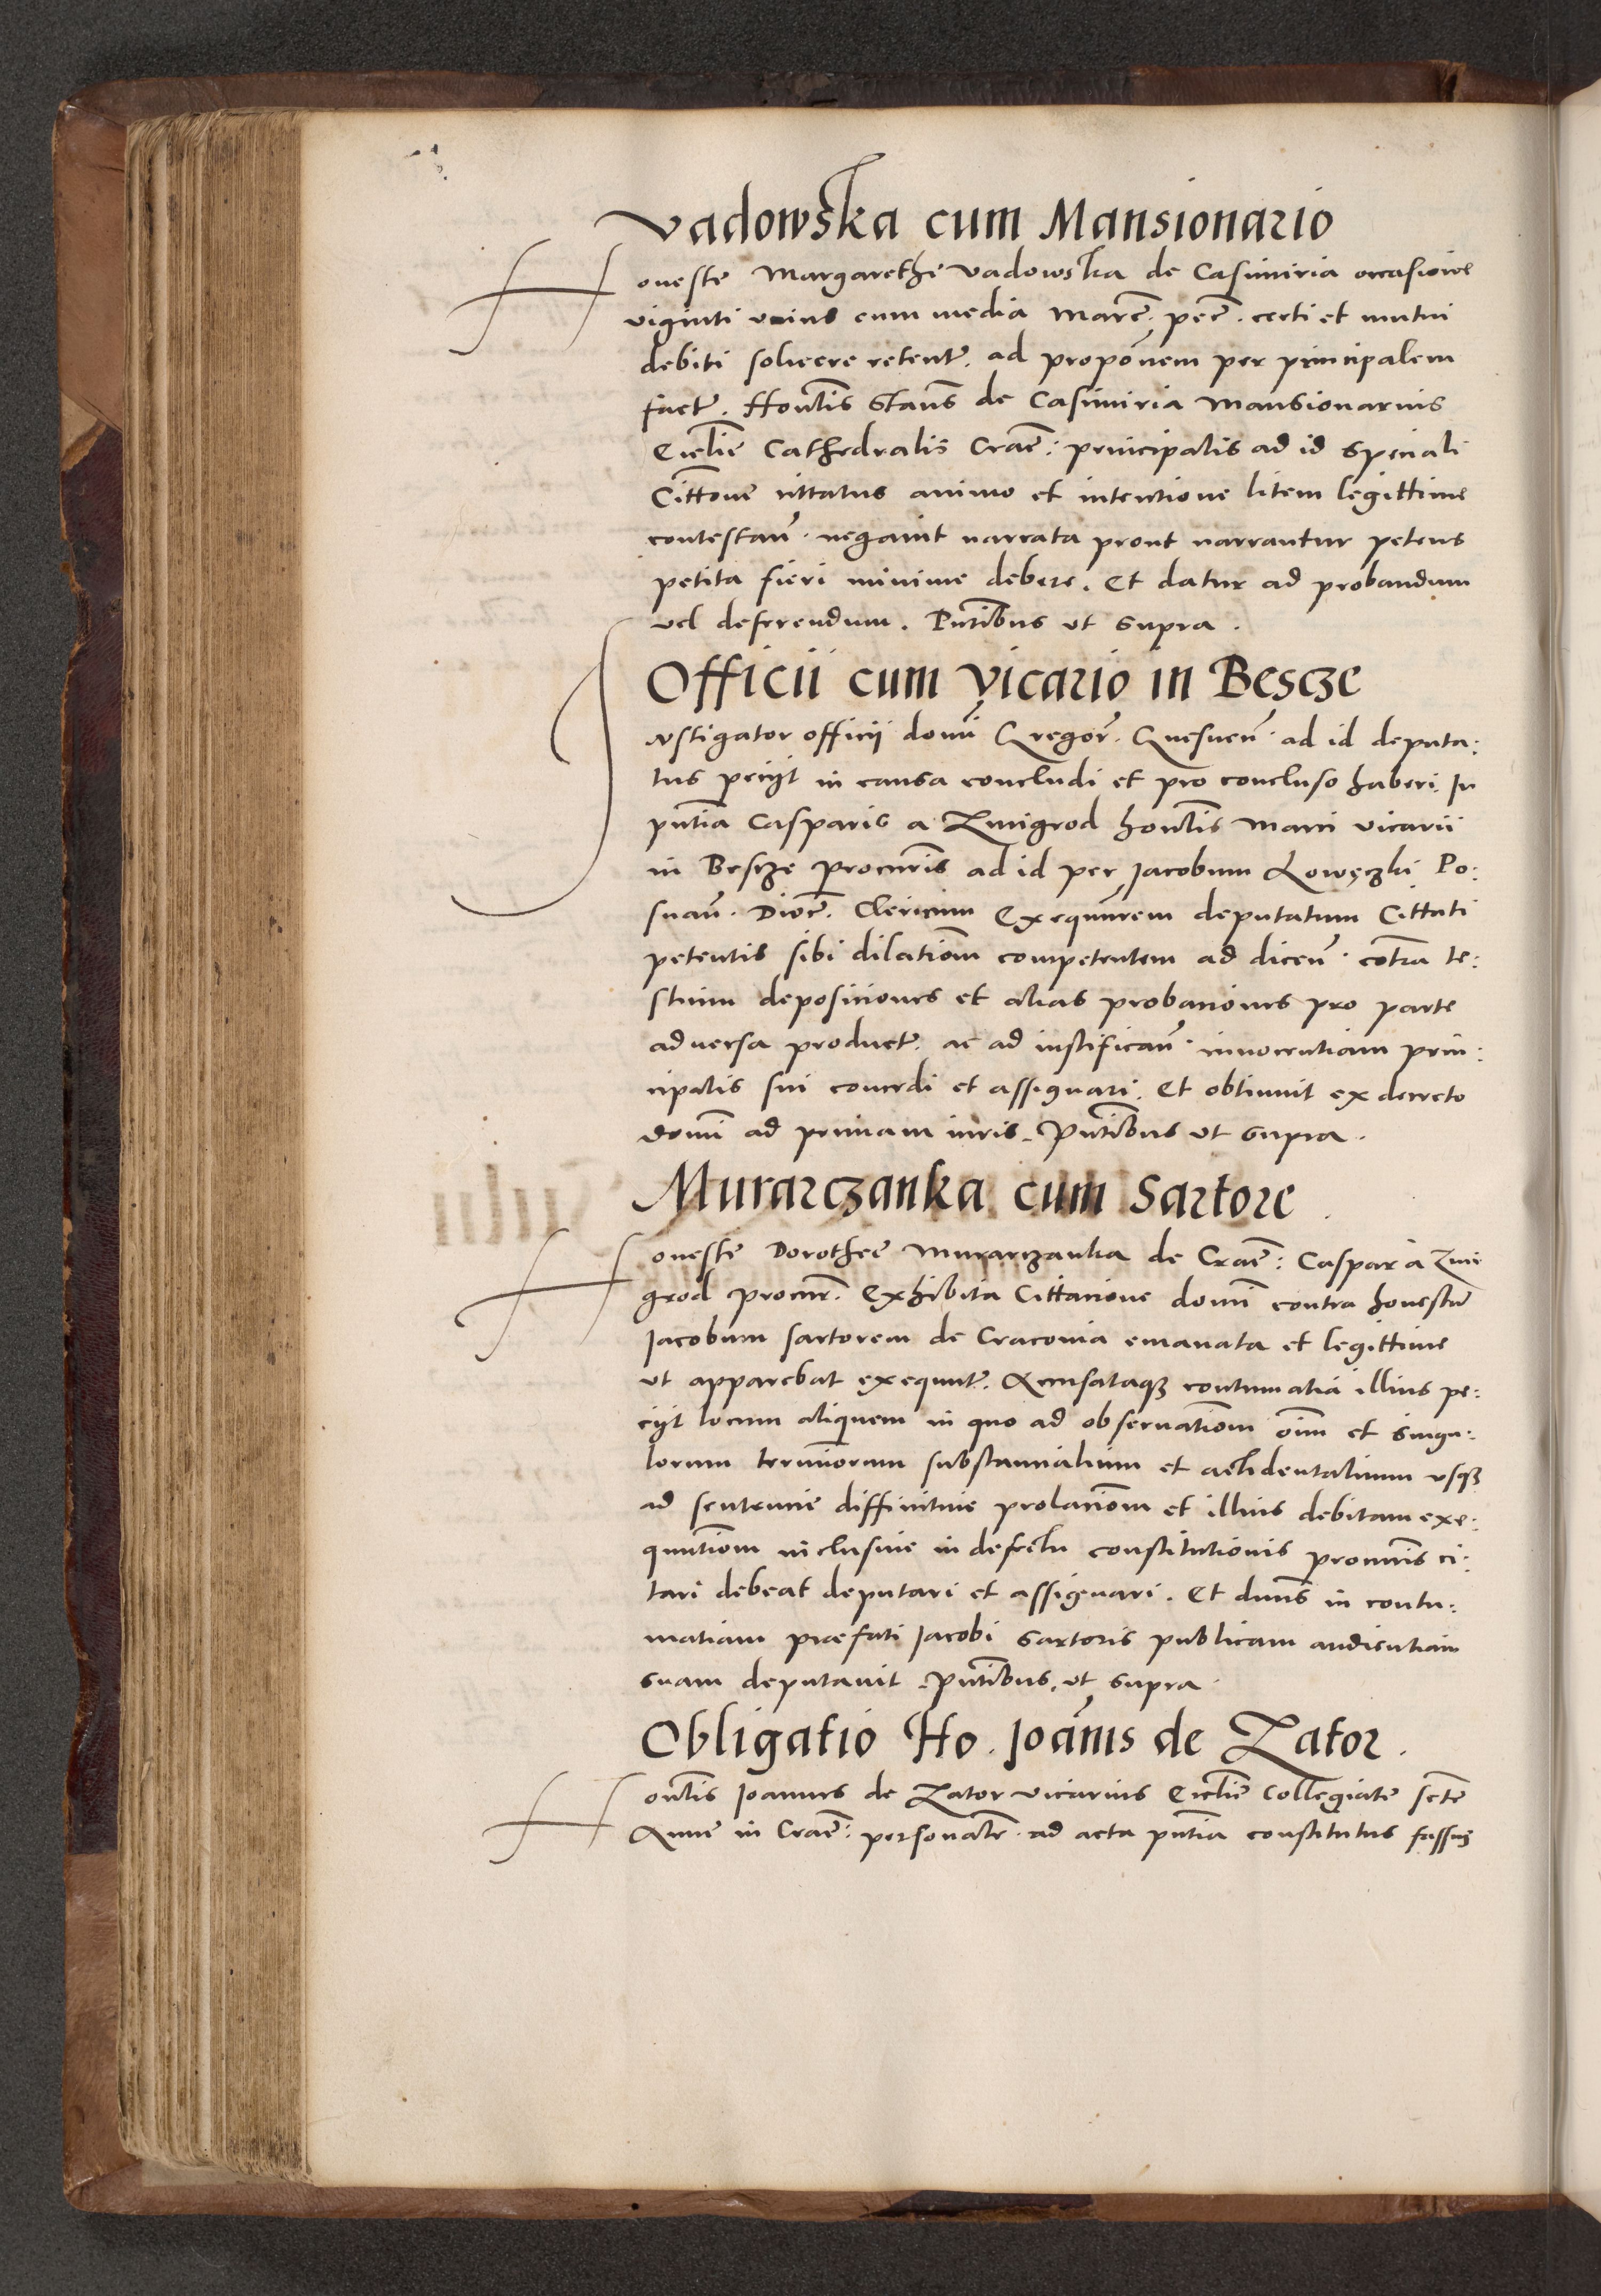 Vadowska cum Mansionario
Honeste Margarethe Vadowska de Casimiria occasione
viginti unius cum media Marc̃. pec̃. certi et mutui
debiti soluere retent̃. ad propõnem per principalem
fact̃. Honl̃is Stañs de Casimiria Mansionarius
Eccl̃ie Cathedralis Crac̃: principalis ad id speciali
Citt̃one cittatus animo et intentione litem legittime
contestañ. negauit narrata prout narrantur petens
petita fieri minime debere. Et datur ad probandum
uel deferendum. Pñtibus ut supra.
Officii cum Vicario in Bescze
Instigator officij domĩ Gregoř. Gnesneñ. ad id deputa:
tus pecijt in causa concludi et pro concluso haberi. In
pñtia Casparis a Zmigrod honl̃is Marci vicarii
in Bescze procur̃is ad id per Jacobum Lowęczki Po:
snañ. Dioc̃. Clericum Exequũrem deputatum Cittati
petentis sibi dilatiõm competentem ad diceñ. cõtra te:
stium deposiciones et alias probaciones pro parte
aduersa product̃. ac ad iustificañ. innocentiam prin:
cipalis sui concedi et assignari. Et obtinuit ex decreto
domĩ ad primam iuris. Pñtibus ut supra.
Murarczanka cum Sartore
Honeste Dorothee Murarczanka de Crac̃: Caspar a Zmi
grod procur̃. Exhibita Cittacione domĩ contra honestũ
Jacobum sartorem de Craconia emanata et legittime
ut apparebat exequut̃. Accusataqꝫ contumatia illius pe:
cijt locum aliquem in quo ad obseruatiõm oĩm et singu:
lorum terminorum substancialium et accidentalium usqꝫ
ad sentencie diffinitiue prolaciõm et illius debitam exe:
quutiõm inclusiue in defectu constitutionis procur̃is ci:
tari debeat deputari et assignari. Et dnũs in contu:
matiam praefati Jacobi sartoris publicam audientiam
suam deputauit. Pñtibus, ut supra.
Obligatio Ho. Joãnis de Zator.
Honl̃is Joannes de Zator vicarius Eccl̃ie Collegiate sctẽ
Anne in Crac̃: personalr̃. ad acta pñtia constitutus fassus